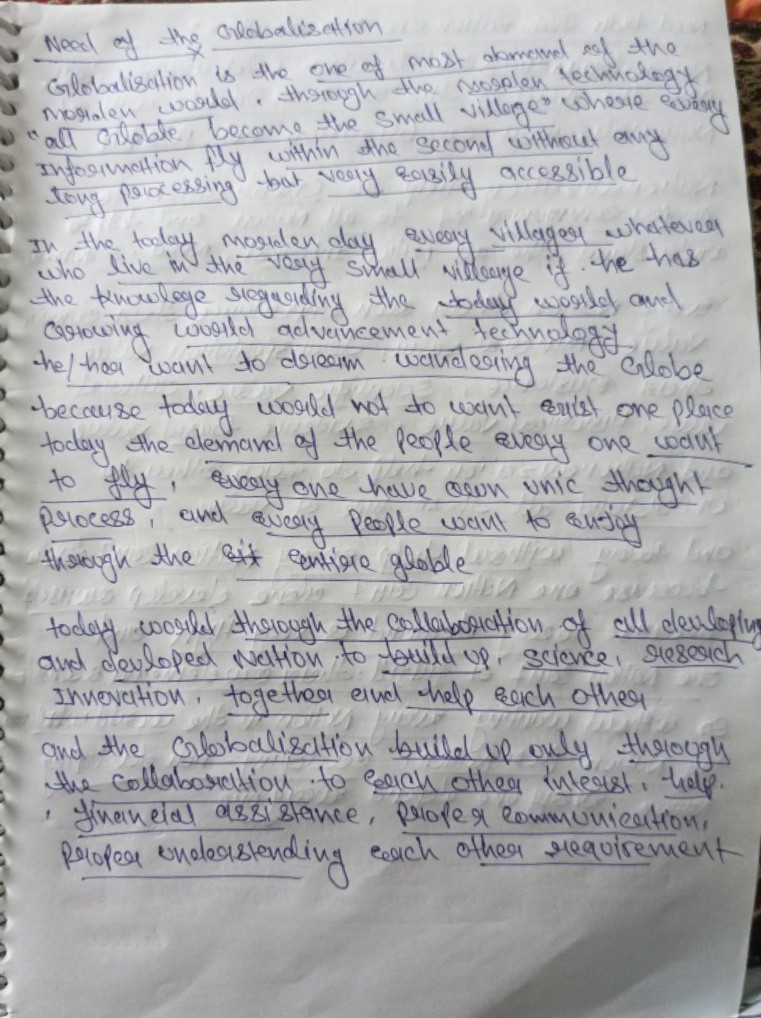 Need of the Globalisation
x
Globalisation is the one of most demand of the
morden world. through the morden technology
"all Globle become the small village" where every
Information fly within the second without any
long processing but very easily accessible
In the today morden day every villager whatever
who live in the very small villeage if he has
the knowlege regarding the today world and
Growing world advancement technology
he/her want to dream wandering the Globe
because today world not to want exist one place
today the demand of the people every one want
to fly, every one have own unic thought
process, and every people want to enjoy
through the entire globle
today world through the collaboration of all developing
and devloped Nation to build up, science, reseach
Innovation, together and help each other
and the Globalisation build up only through
the collaboration to each other interist, help.
, financial assistance, proper communication,
proper understending each other requirement